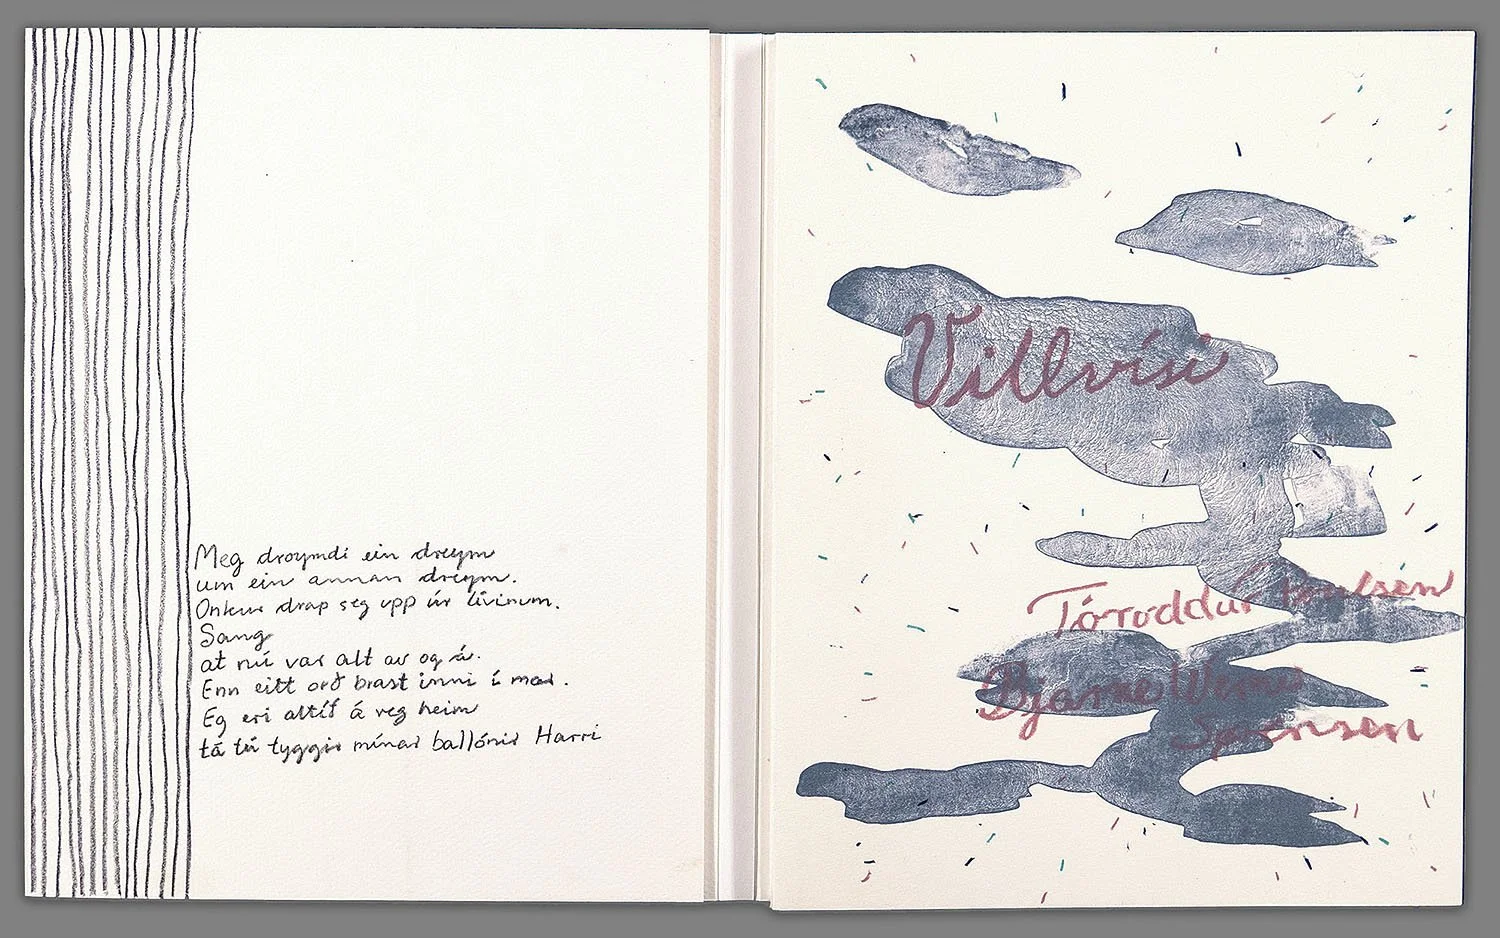 Meg droymdi ein dreym
um ein annan dreym.
Onkur drap seg upp úr lívinum.
Sang
at nú var alt av og á.
Enn eitt orð brast inni í mær.
Eg eri altíð á veg heim
tá tú tyggir mínar ballónir Harri
Villvísi
Tóroddur Poulsen
Bjarne Werner
Sørensen